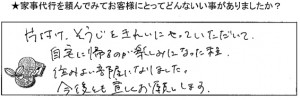 ★家事代行を頼んでみてお客様にとってどんないい事がありましたか?
片付け、そうじをきれいにやっていただいて、
自宅に帰るのが楽しみになった程
住みよい部屋になりました。
今後も宜しくお願いします。